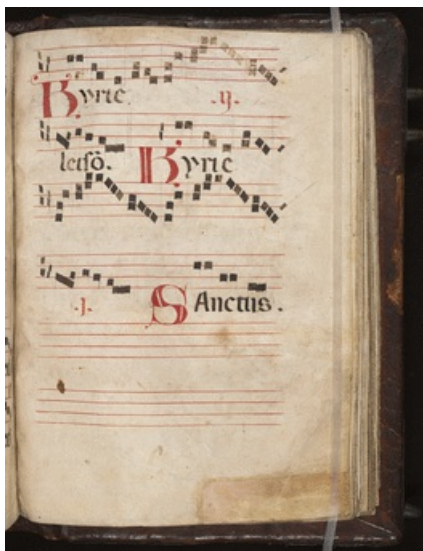 Kyrie .ij.
leisõ. Kyrie
.j. Sanctus.